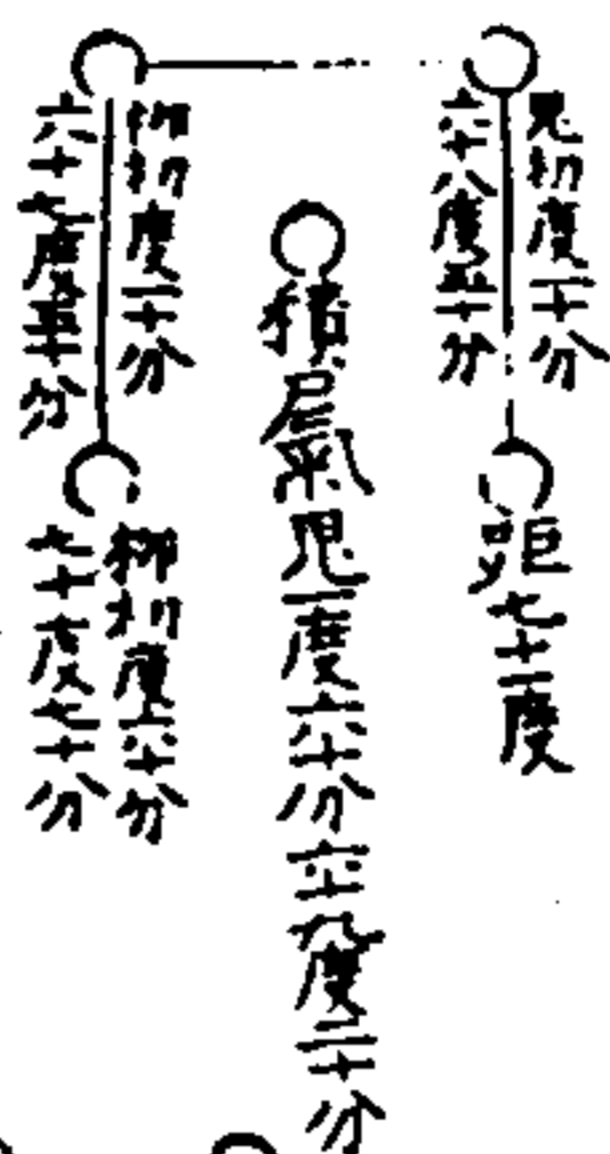 鬼初度二十分
六十八度五十分
距七十一度
積尸氣鬼一度六十分六十九度二十分
柳初度二十分
六十七度五十分
柳初度六十分
七十度七十分